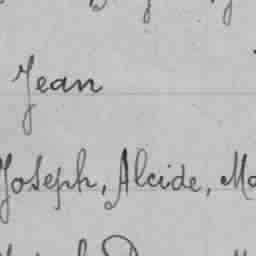 Jean
Joseph, Alcide, Ma